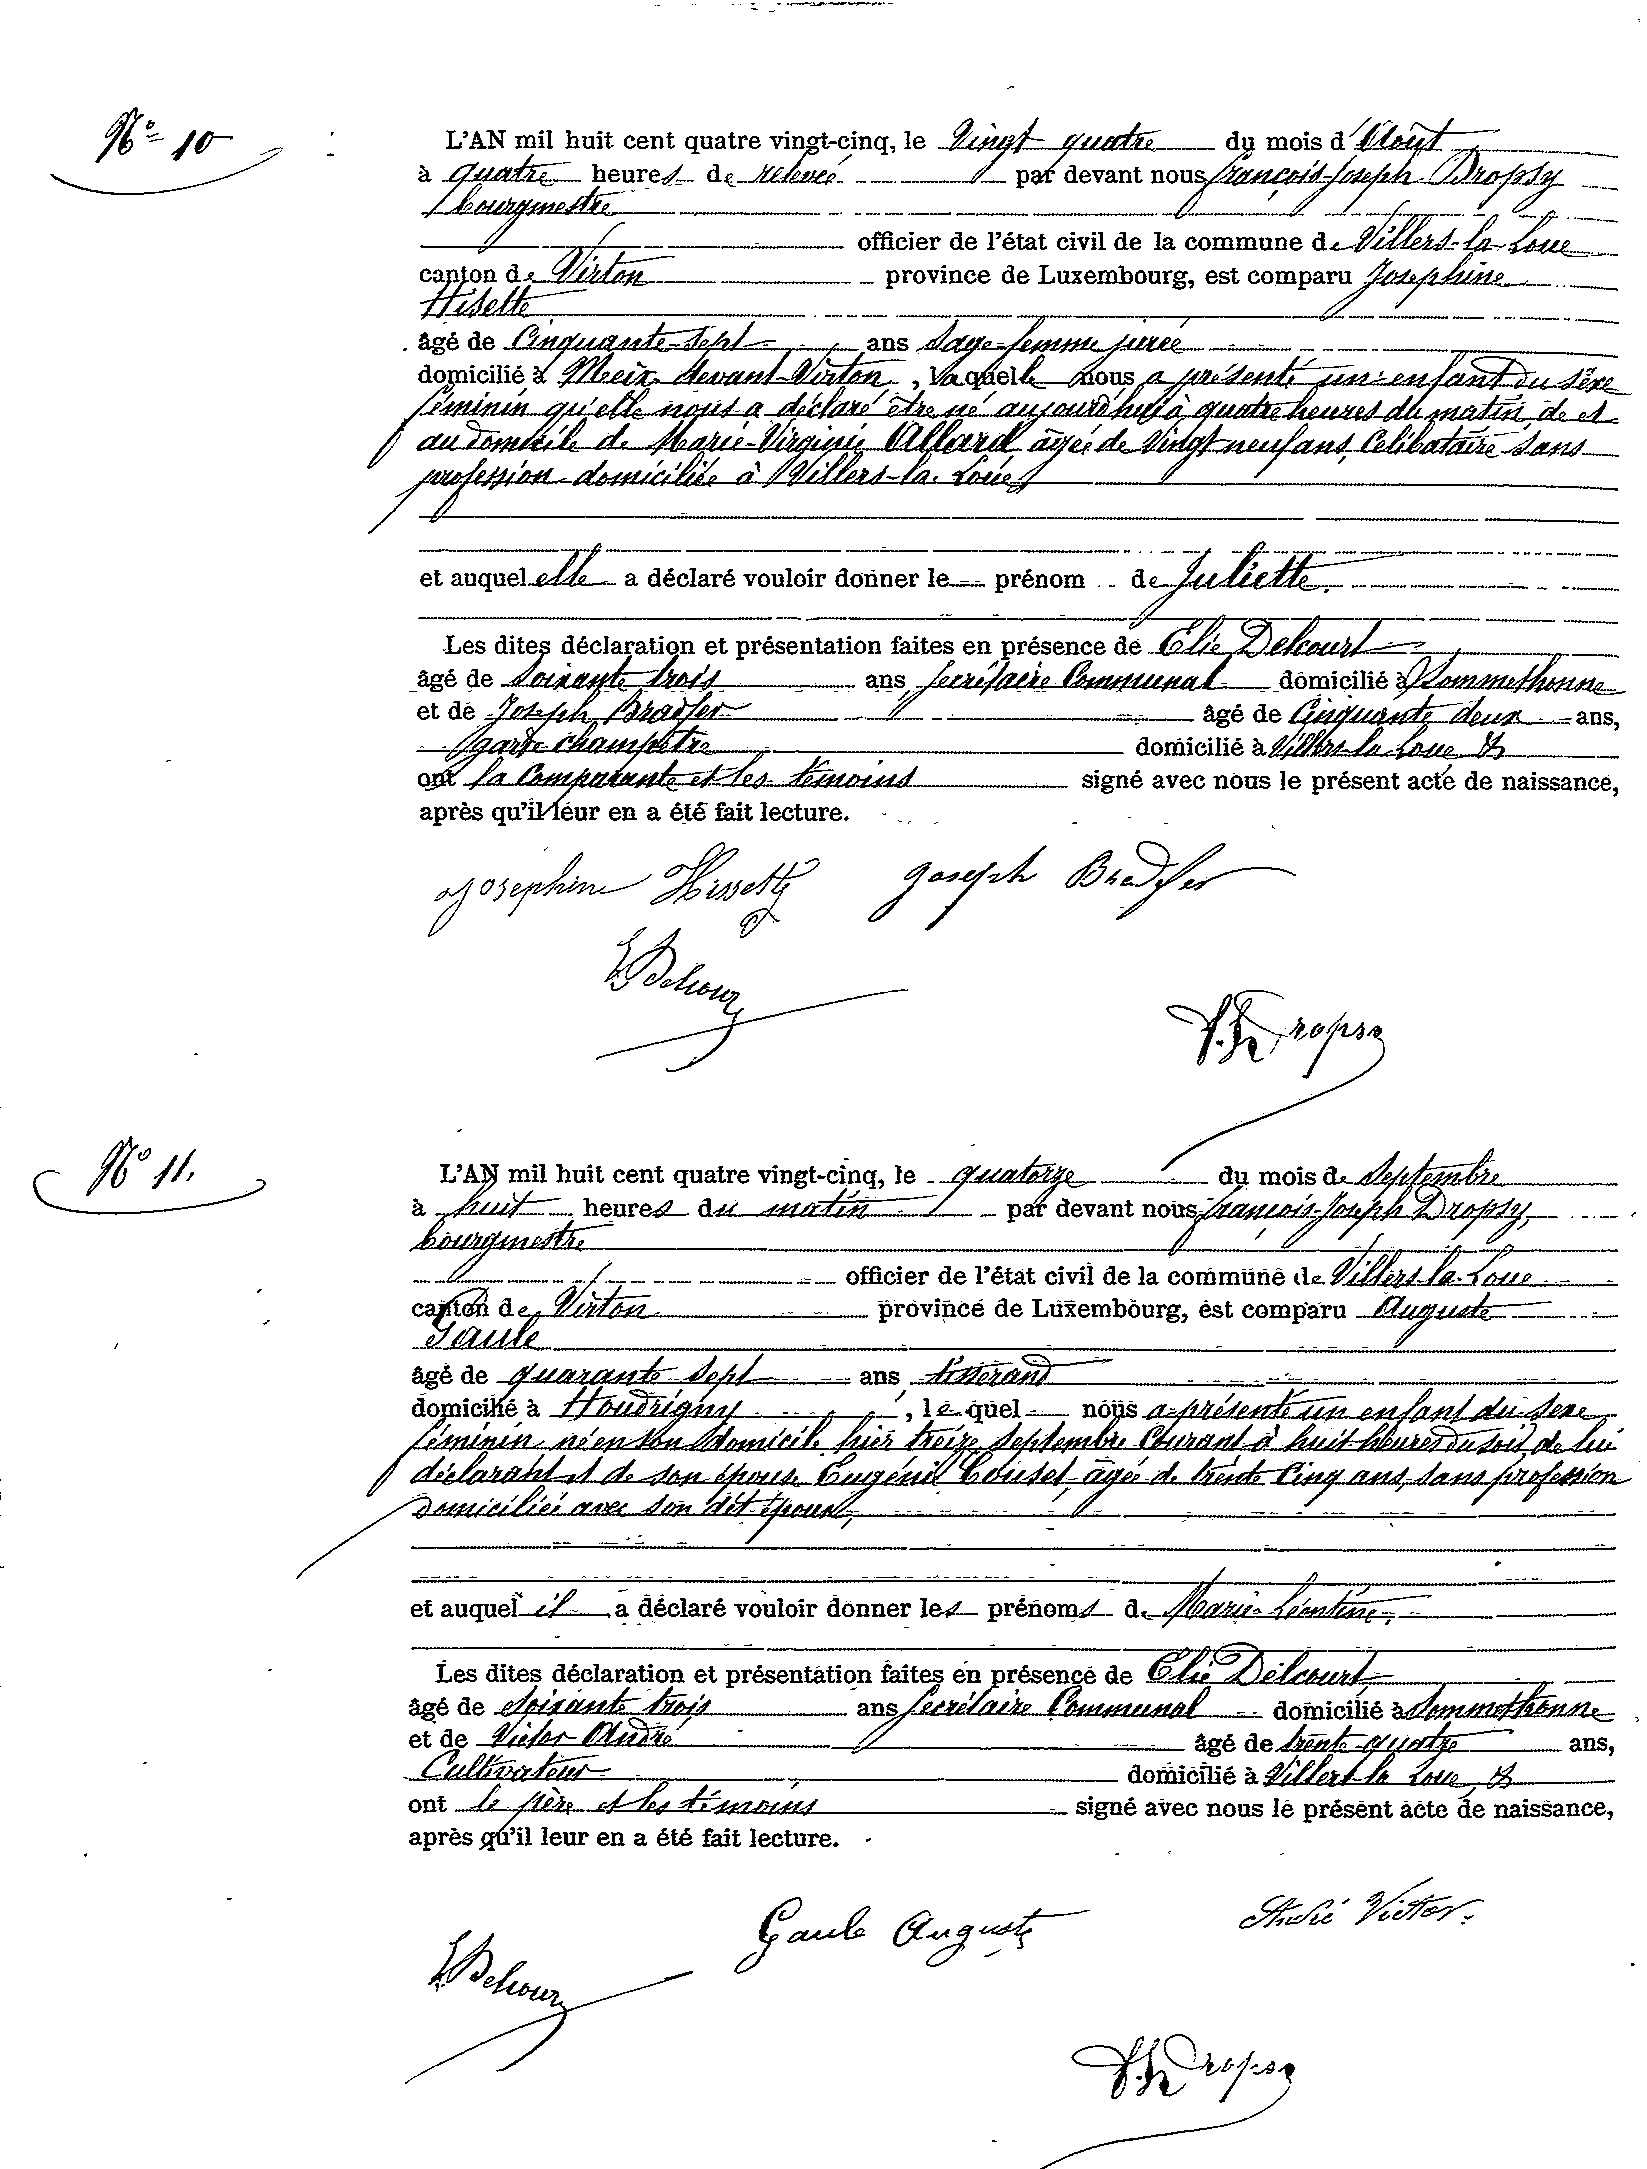 Nº 10
L'AN mil huit cent quatre vingt-cinq, le Vingt quatre du mois d'Août
à quatre heures de relevée par devant nous françois-Joseph Dropsy
bourgmestre
officier de l'état civil de la commune de Villers-la-Loue
canton de Virton province de Luxembourg, est comparu Josephine
Hisette
âgé de Cinquante-sept ans Sage-femme jurée
domicilié à Meix devant-Virton, laquelle nous a présenté un enfant du sexe
féminin qu'elle nous a déclaré être né aujourd'hui à quatre heures du matin, de et
au domicile de Marie-Virginie Allard, âgée de Vingt neuf ans, Celibataire sans
profession domiciliée à Villers-la-Loue,
et auquel elle a déclaré vouloir donner le prénom de Juliette.
Les dites déclaration et présentation faites en présence de Elie Delcourt
âgé de Soixante trois ans, Secrétaire Communal domicilié à Sommethonne
et de Joseph Bradfer âgé de Cinquante deux ans,
garde champêtre domicilié à Villers la Loue, &
ont la Comparante et les témoins signé avec nous le présent acte de naissance,
après qu'il leur en a été fait lecture.
Josephine Hissette Joseph Bradfer
E Delcour
F. J. Dropsy
Nº 11.
L'AN mil huit cent quatre vingt-cinq, le quatorze du mois de Septembre
à huit heures du matin par devant nous françois-Joseph Dropsy,
bourgmestre
officier de l'état civil de la commune de Villers-la-Loue
canton de Virton province de Luxembourg, est comparu Auguste
Gaule
âgé de quarante sept ans, tisserand
domicilié à Houdrigny, lequel nous a présenté un enfant du sexe
féminin né en son domicile hier treize Septembre Courant à huit heures du soir, de lui
déclarant et de son épouse Eugénie Couset, âgée de trente Cinq ans, sans profession
domiciliée avec son dit époux,
et auquel il a déclaré vouloir donner les prénoms de Marie-Léontine,
Les dites déclaration et présentation faites en présence de Elie Delcourt,
âgé de Soixante trois ans Secrétaire Communal domicilié à Sommethonne
et de Victor André âgé de trente quatre ans,
Cultivateur domicilié à Villers la Loue, &
ont le père et les témoins signé avec nous le présent acte de naissance,
après qu'il leur en a été fait lecture.
Gaule Auguste André Victor.
E Delcour
F. J. Dropsy